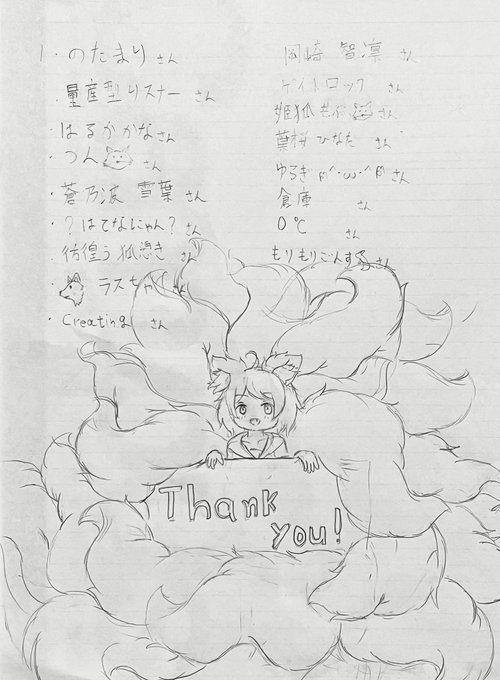 ・のたまりさん
・量産型リスナーさん
・はるかかなさん
・つんさん
・蒼乃波 雪葉さん
・?はてなにゃん?さん
・彷徨う狐憑きさん
・ラスちゃんさん
・Creatingさん
岡崎 智凛さん
ゲイトロックさん
姫狐もふさん
葉桜ひなたさん
ゆるぎ
さん
倉庫さん
0℃さん
もりもりごんするさん
Thank
you!